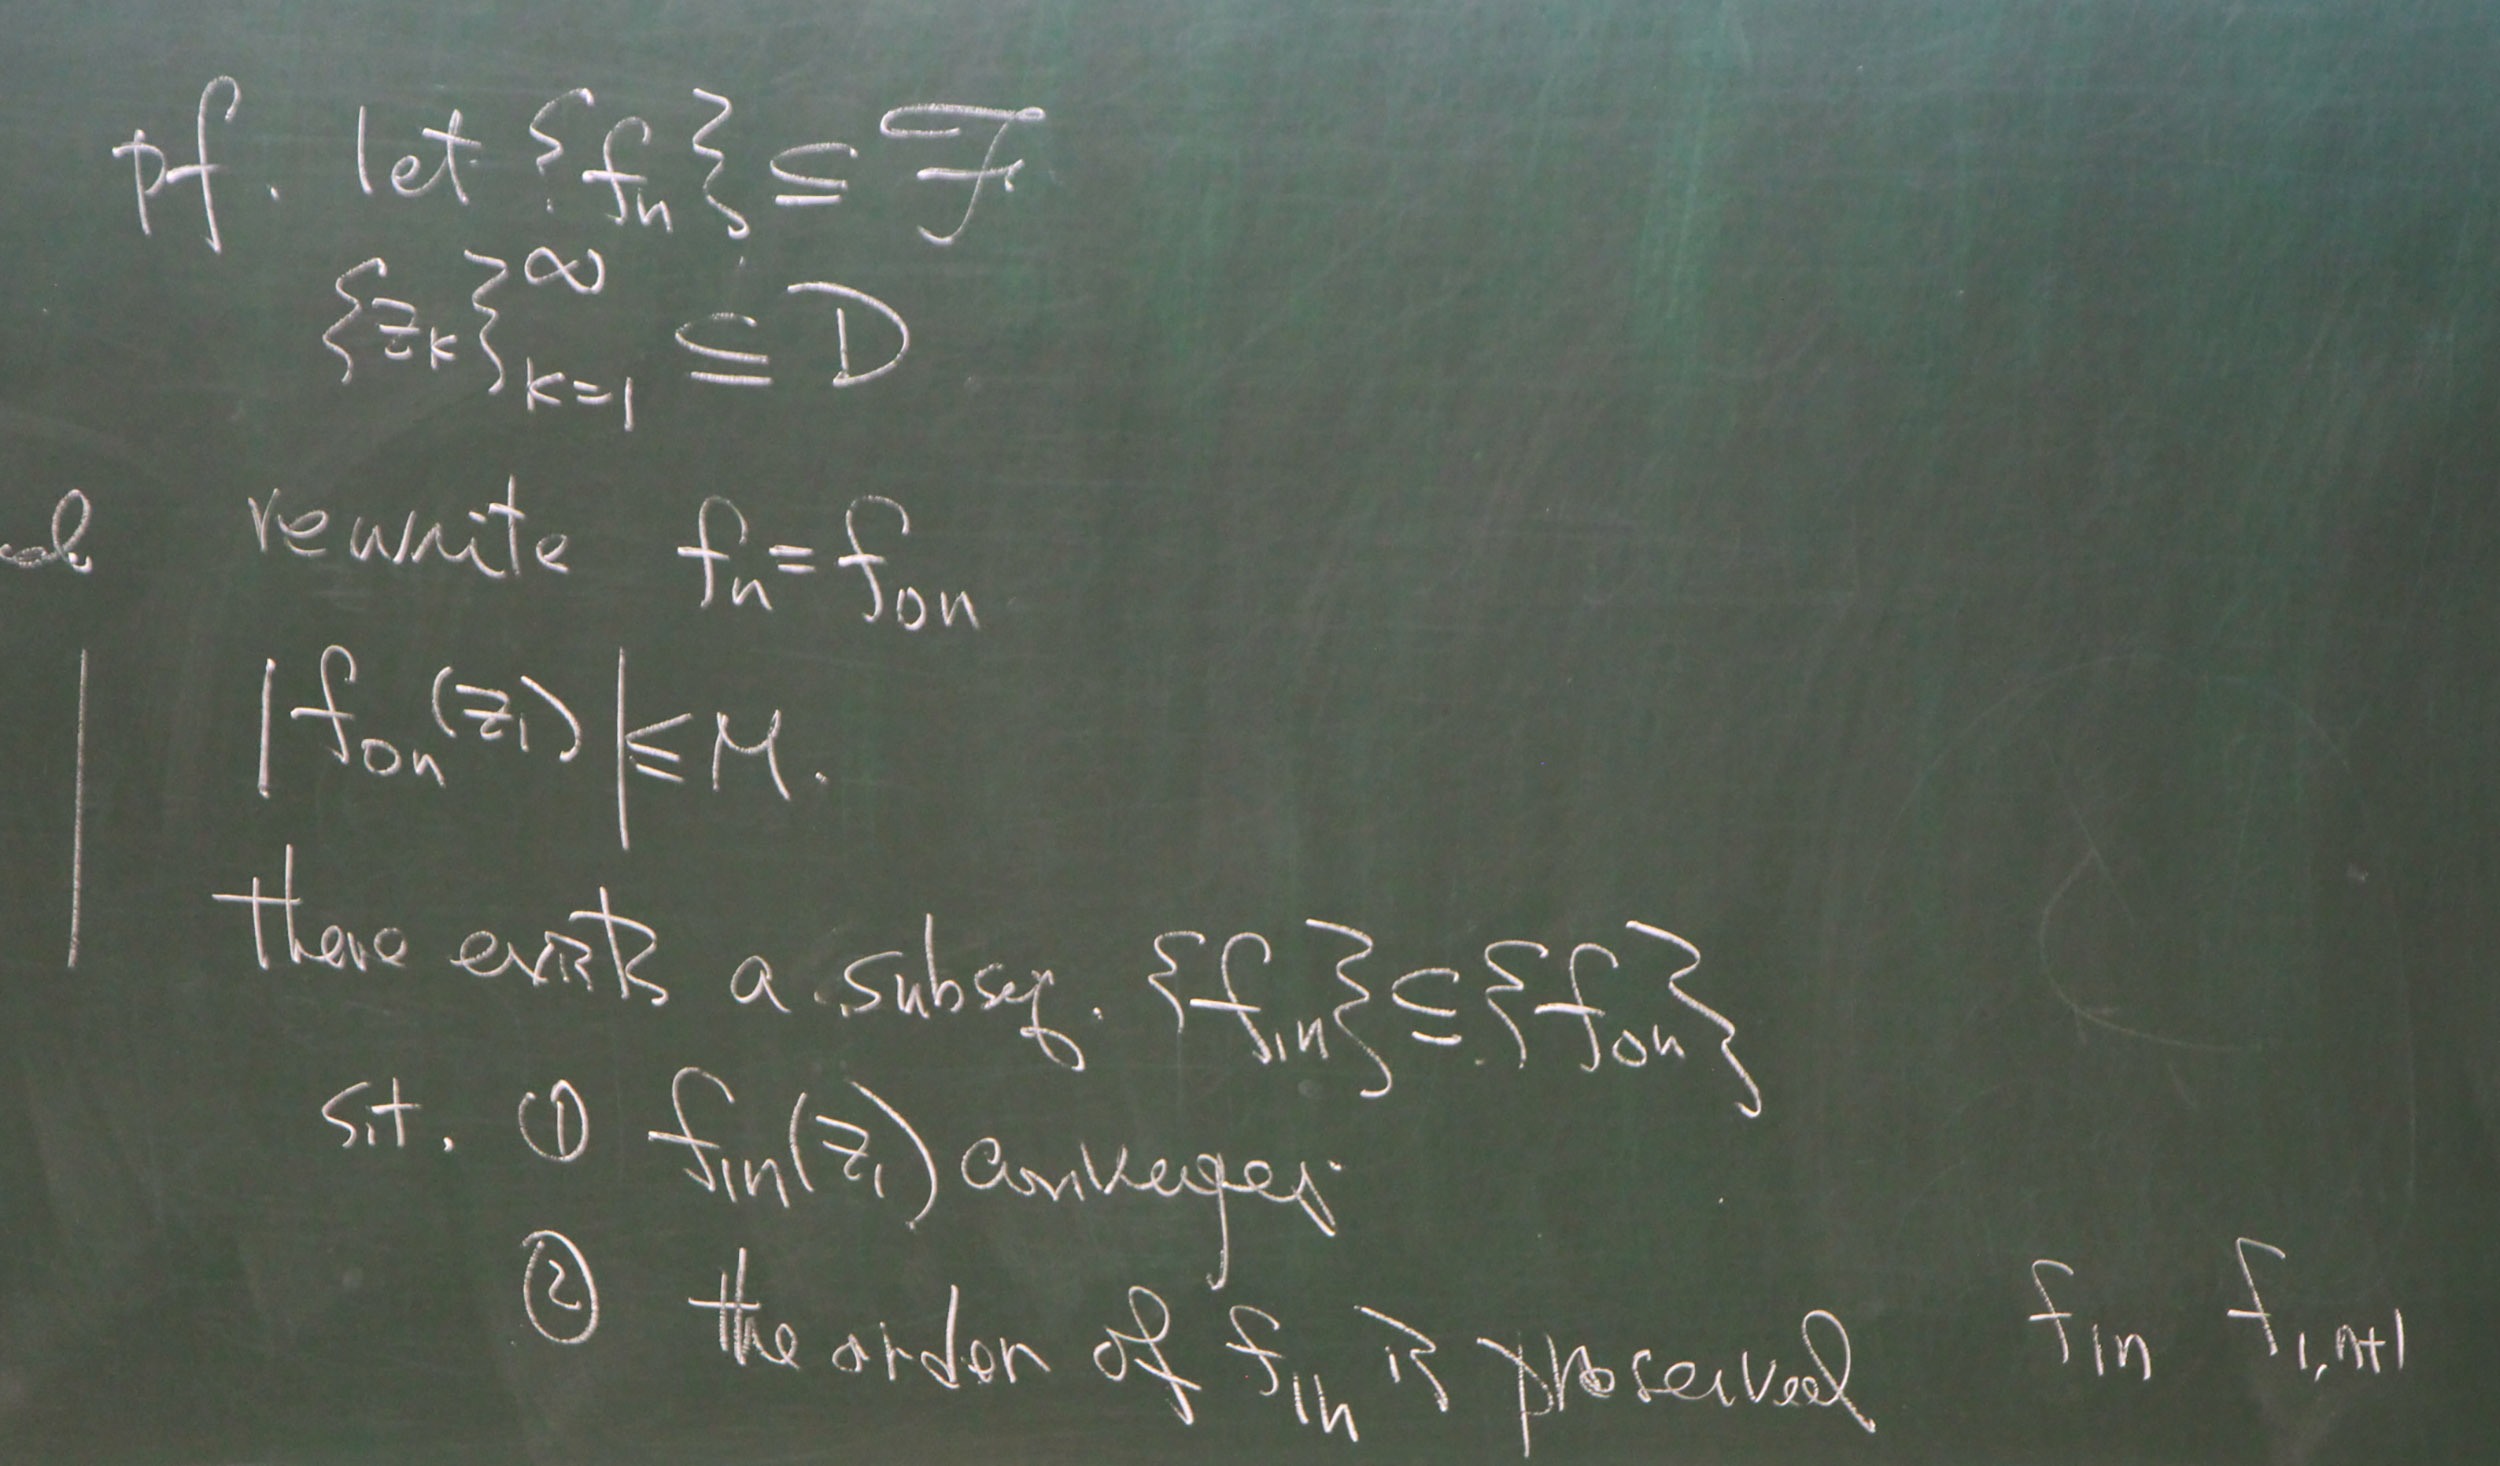 pf. let {fₙ} ⊆ ℱ
{z_k}_{k=1}^∞ ⊆ D
rewrite fₙ = f₀ₙ
|f₀ₙ(z₁)| ≤ M.
there exists a subseq. {f₁ₙ} ⊆ {f₀ₙ}
s.t. ① f₁ₙ(z₁) converges.
② the order of f₁ₙ is preserved f₁ₙ f_{1,n+1}